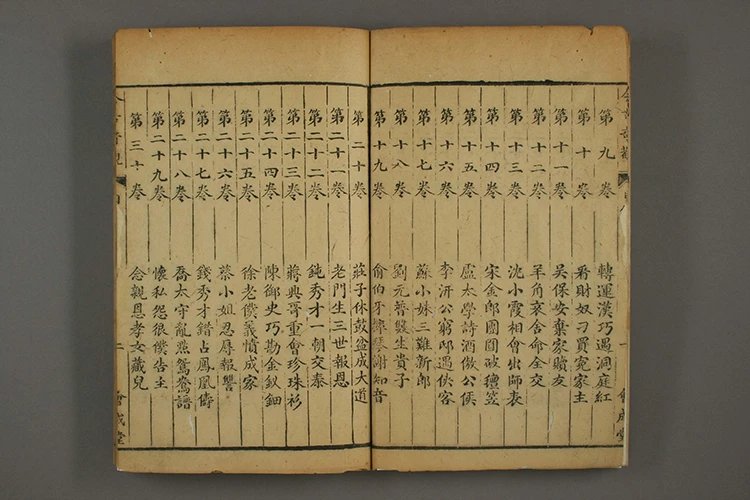 第九卷 轉運漢巧遇洞庭紅
第十卷 看財奴刁買冤家主
第十一卷 吳保安棄家贖友
第十二卷 羊角哀舍命全交
第十三卷 沈小霞相會出師表
第十四卷 宋金郎團圓破氊笠
第十五卷 盧太學詩酒傲公侯
第十六卷 李汧公窮邸遇俠客
第十七卷 蘇小妹三難新郎
第十八卷 劉元普雙生貴子
第十九卷 俞伯牙捧琴謝知音
會成堂
第二十卷 莊子休鼓盆成大道
第二十一卷 老門生三世報恩
第二十二卷 鈍秀才一朝交泰
第二十三卷 蔣興哥重會珍珠衫
第二十四卷 陳御史巧勘金釵鈿
第二十五卷 徐老僕義憤成家
第二十六卷 蔡小姐忍辱報讐
第二十七卷 錢秀才錯占鳳凰儔
第二十八卷 喬太守亂㸃鴛鴦譜
第二十九卷 懷私怨狠僕告主
第三十卷 念親恩孝女藏兒
二 會成堂